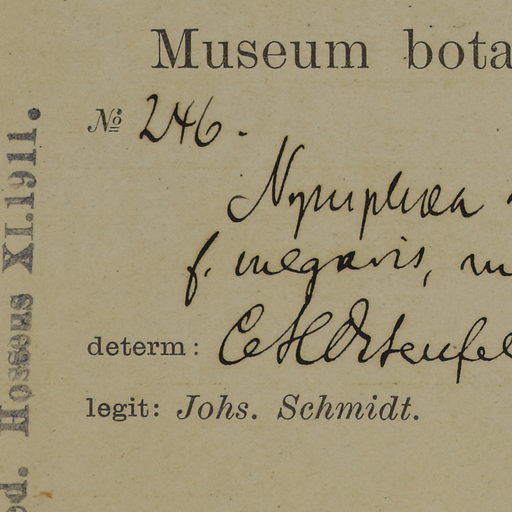 Museum bota
№ 246.
Nymphæa
f.
determ: C. H. Ostenfel
legit: Johs. Schmidt.
ed. Hosseus XI.1911.